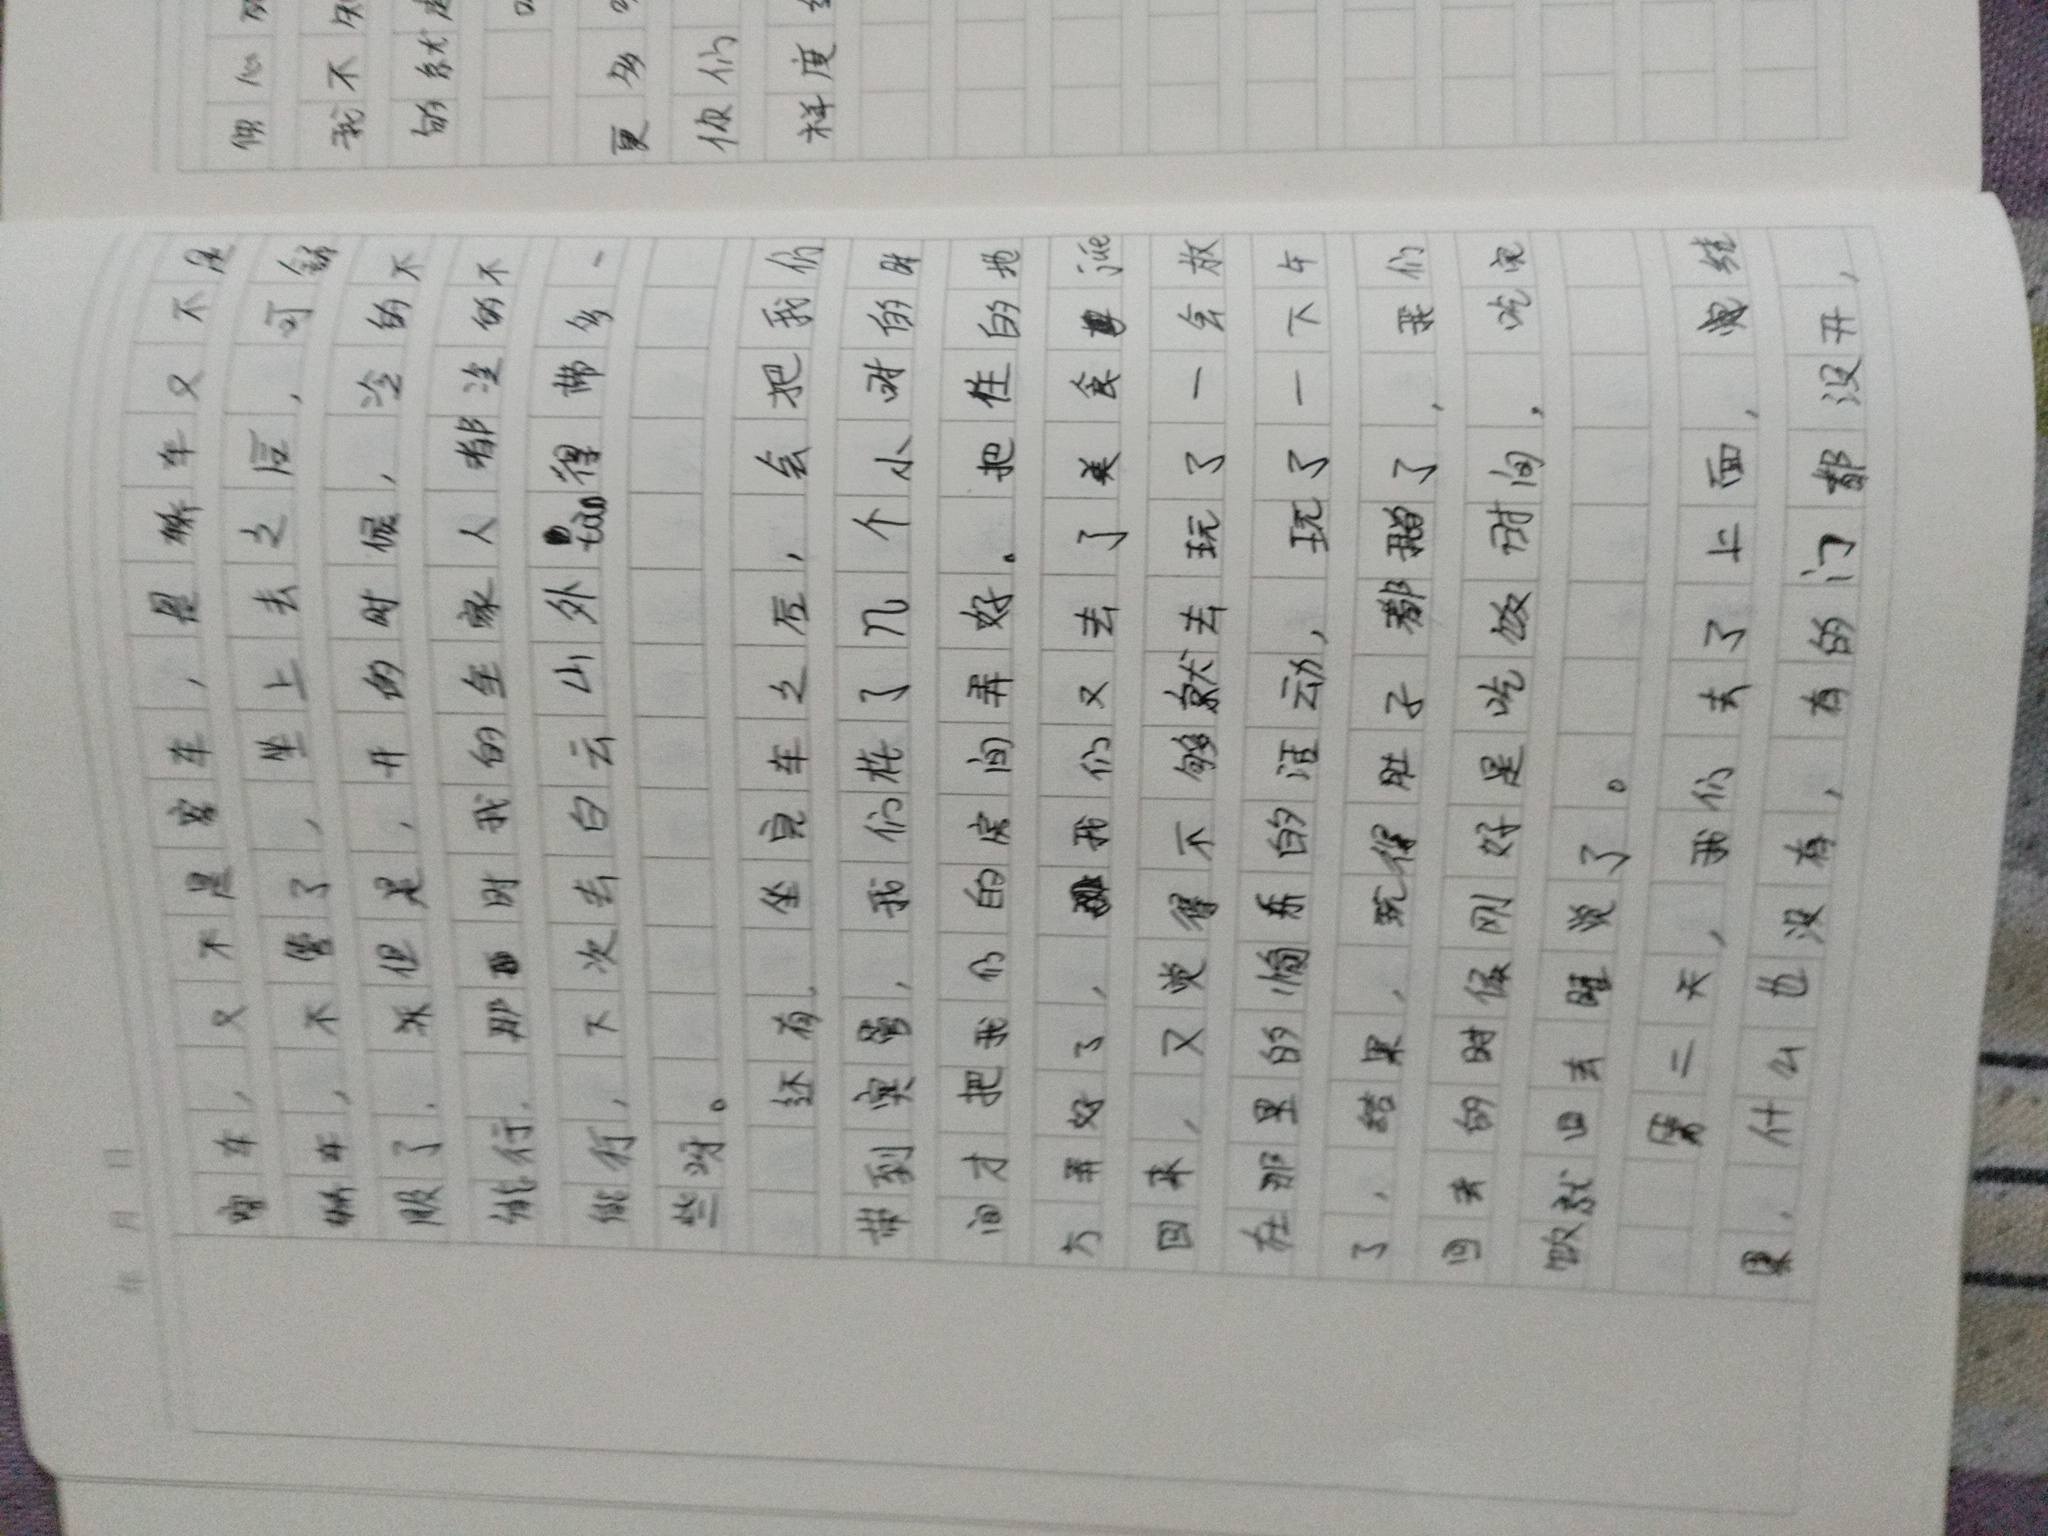 车,又不是客车,是缆车又不是
缆车,不管了,坐上去之后,可舒
服了.但是,开的时候,冷的不
能行.那时我的全家人都冷的不
能行,下次去白云山外tào得带多一
些呀。
还有.坐完车之后,会把我们
带到宾馆,我们在了几个小时的时
间才把我们的房间弄好。把住的地
方弄好了,我们又去了美食jiē
回来,又觉得不够就去玩了一会放
在那里的的活动,玩了一下午
了,结果,玩得肚子都了,我们
回来的时候刚好是吃饭时间,吃完
饭就回去睡觉了。
第二天,我们去了上面,结
果,什么也没有,有的门都没开,
我不知
的就是
更多
你们
样度